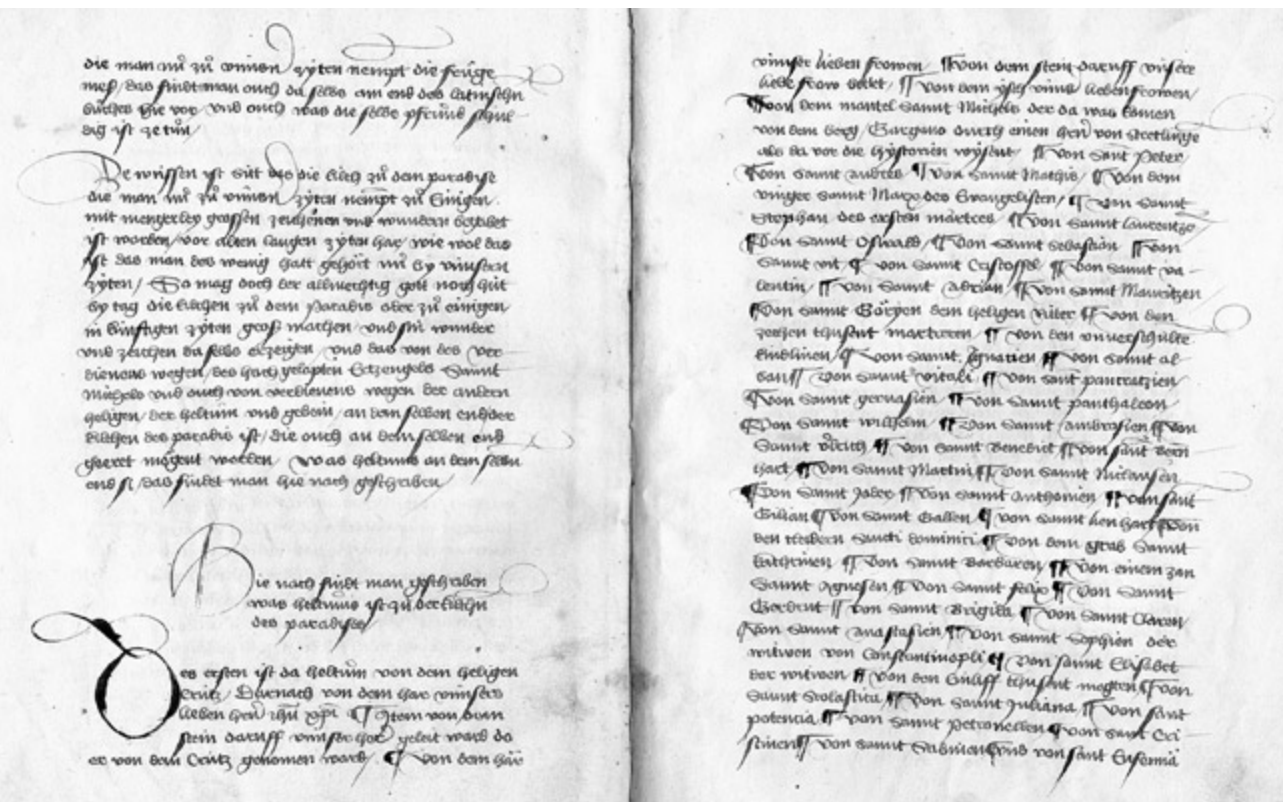 die man nu zu unnsern zyten nempt die frúge
mess / das findt man ouch da selbs am end des latinschen
buches hie vor / vnd ouch was die selbe pfrund schul
dig ist ze tun /
Ze wússen ist sit das die kilch zu dem paradise
die man nu zu unnsern zyten nempt zu Einigen
mit mengerley grossen zeichenen vnd wundern begabet
ist worden / vor alten langen zyten har / wie wol das
ist das man des wenig hatt gehört nu by unnsern
zyten / So mag doch der allmechtig gott noch hút
by tag die kilchen zu dem Paradis oder zu einigen
in kúnftigen zyten gross machen / vnd sin wunder
vnd zeichen da selbs erzeigen / vnd das von des ver
dienens wegen / des hoch gelopten Ertzengels Sannt
Michels vnd ouch von verdienens wegen der andern
heligen / der heltum vnd gebein / an dem selben end der
kilchen des paradis ist / die ouch an dem selben end
geeret mögent werden / was heltums an dem selben
end si / das findt man hie nach geschriben
Hie nach findt man geschriben
was heltums ist zu der kilchen
des paradises /
Des ersten ist da heltum von dem heligen
Crútz / Darnach von dem har unnsers
lieben hern ihu xpi ¶ Item von dem
stein daruff unnser her geleit ward do
er von dem Crútz genomen ward / ¶ Von dem har
unnser lieben frowen / ¶ Von dem stein daruff unnser
liebe frow / ¶ Von dem unns lieben frowen /
¶ Von dem mantel Sannt Michels der da was komen
von dem berg / Gargano durch einen hern von Stretlingen
als da vor die hystorien wysent / ¶ Von sant Peter /
¶ Von Sannt andres ¶ Von Sannt Mathis / ¶ Von dem
vinger Sannt Marx des Evangelisten / ¶ Von Sannt
Stephan des ersten martres / ¶ Von Sannt laurentzen
¶ Von Sannt Oswald / ¶ Von Sannt sebastion ¶ Von
Sannt vit / ¶ Von Sannt Cristoffel ¶ Von Sannt va
lentin / ¶ Von Sannt Adrian / ¶ Von sannt Mauritzen
¶ Von Sannt Göryen dem heligen ritter ¶ Von den
zechen thusent martreren / ¶ Von den unverschulte
kindlinen / ¶ Von Sannt Ignatien ¶ Von Sannt al
ban ¶ Von Sannt vitali / ¶ Von sant pancratzien /
¶ Von Sannt gervasien / ¶ Von Sannt panthaleon /
¶ Von Sannt wilhelm / ¶ Von Sannt ambrosien ¶ Von
Sannt ulrich ¶ Von Sannt Benedict ¶ Von sant bern
hart ¶ Von Sannt Martin ¶ Von Sannt Niclausen
¶ Von Sannt Joder ¶ Von Sannt Anthonien ¶ Von sant
Gilian ¶ Von Sannt Gallen ¶ Von Sannt lienhart ¶ Von
den kleidern Sancti dominici ¶ Von dem grab Sannt
kathrinen ¶ Von Sannt Barbaren ¶ Von einem zan
Sannt Agnesen ¶ Von Sannt felix ¶ Von Sannt
Gerdrut ¶ Von Sannt Brigida ¶ Von Sannt Claren /
¶ Von Sannt anastasien ¶ Von Sannt Sophien der
witwen von Constantinopli ¶ Von sannt Elisabet
der witwen ¶ Von den Einliff thusent megten ¶ Von
Sannt Scolastica ¶ Von Sannt Juliana ¶ Von sant
potencia ¶ Von Sannt Petronellen ¶ Von sant Cri
stinen ¶ Von Sannt Sabinen ¶ Vnd von sant Eufemia